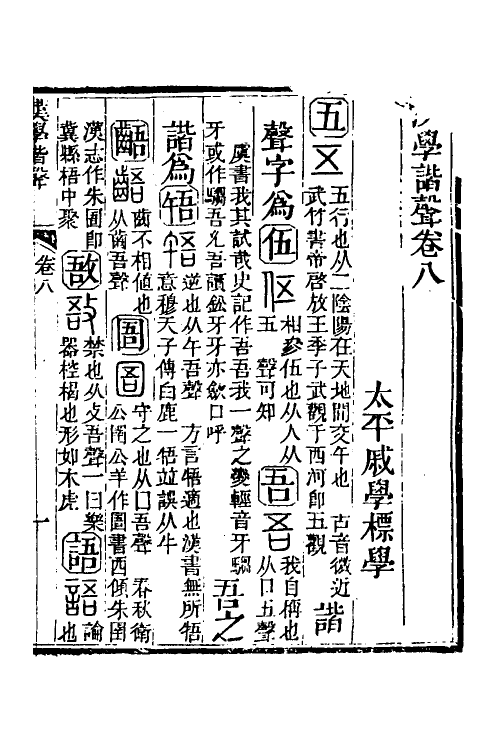 學諧聲卷八
太平戚學標學
五 五行也从二陰陽在天地間交午也 古音微近
武竹書帝啓放王季子武觀于西河卽五觀 諧
聲字爲伍 相參伍也从人从
五 聲可知 吾 我自稱也
从口五聲
虞書我其試哉史記作吾吾我一聲之變輕音牙騶
牙或作騶吾允吾讀鈆牙牙亦歙口呼 吾之
諧爲啎 逆也从午吾聲 方言牾適也漢書無所牾
意穆天子傳白鹿一牾並誤从牛
齬 齒不相値也
从齒吾聲 圄 守之也从囗吾聲 春秋衛
公圉公羊作圄書西傾朱圉
漢志作朱圄卽
冀縣梧中聚 敔 禁也从攴吾聲一曰樂
器椌楬也形如木虎 語 論
也
漢學諧聲 卷八 一